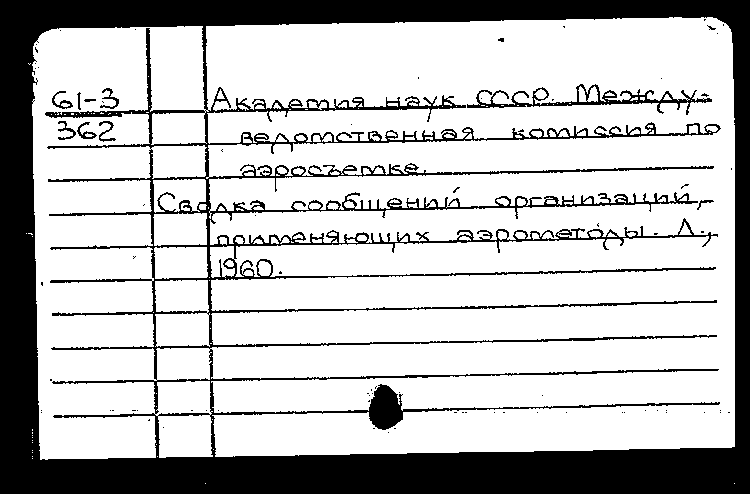 61-3 Академия наук СССР. Между-
362 ведомственная комиссия по
аэросъемке.
Сводка сообщений организаций,
применяющих аэрометоды. Л.,
1960.